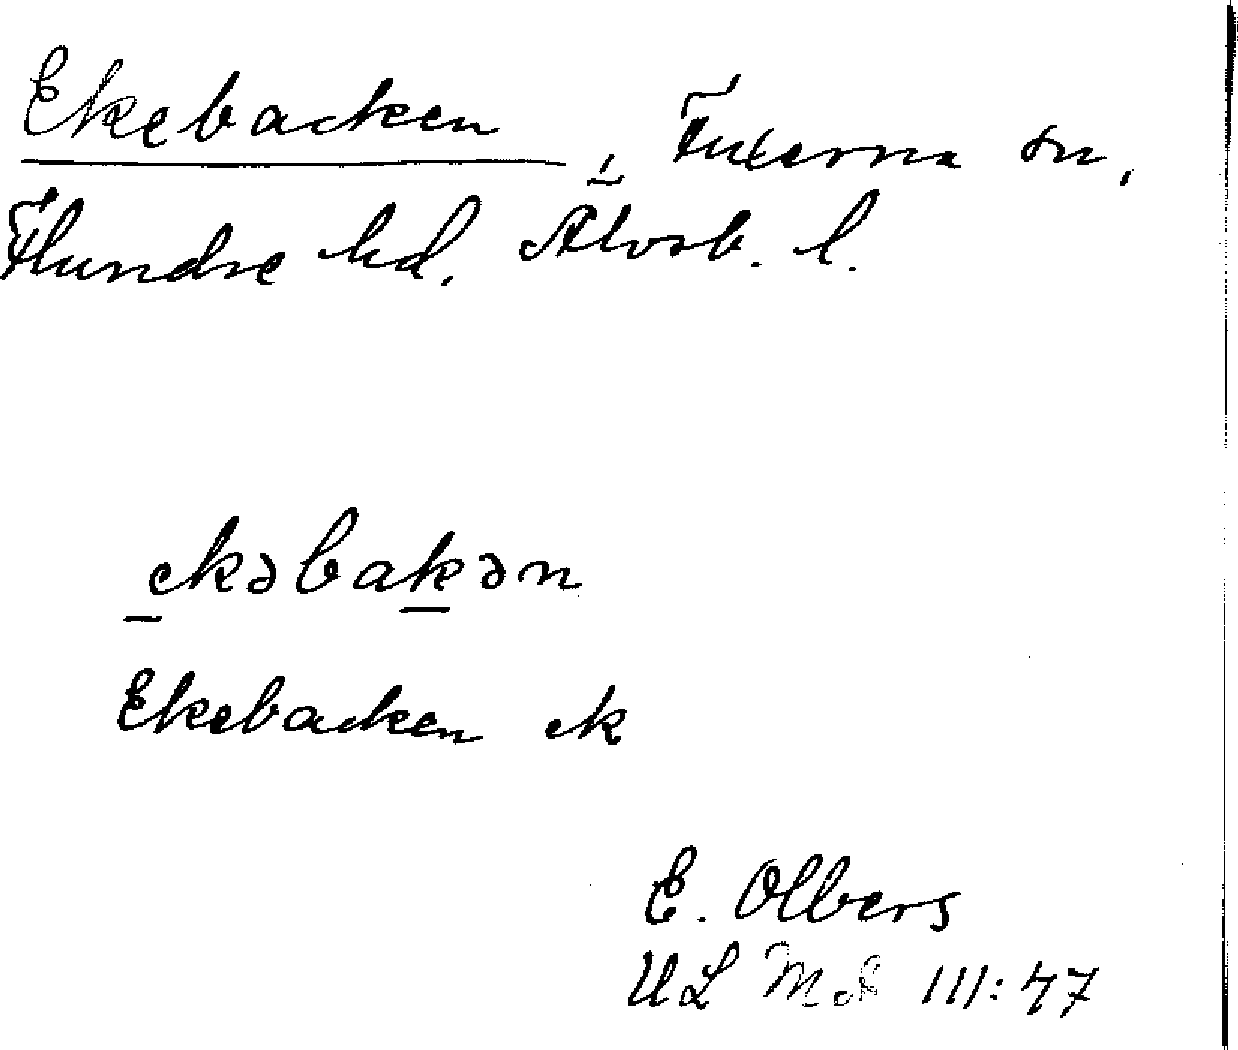 Ekebacken, i Fuxerna sn,
Flundre hd. Älvsb. l.
ekəbakən
Ekebacken ek
E. Olbers
UL Ms III:47